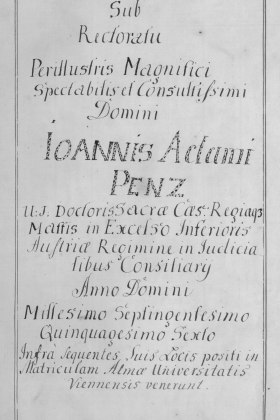 Sub
Rectoratu
Perillustris Magnifici
Spectabilis et Consultissimi
Domini
IOANNIS Adami
PENZ
U: J. Doctoris Sacræ Cæs: Regiaqȝ
Mattis in Excelso Inferioris
Austriæ Regimine in Iudicia
libus Consiliarÿ
Anno Domini
Millesimo Septingentesimo
Quinquagesimo Sexto
Infra sequentes, Suis Locis positi in
Matriculam Almæ Universitatis
Viennensis venerunt.